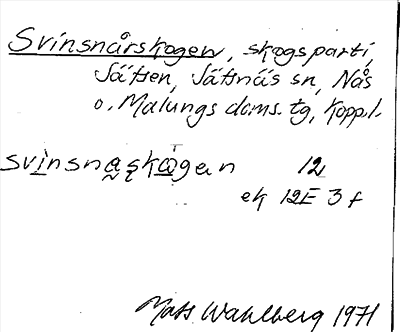 Svinsnårskogen, skogsparti,
Sätten, Jättnäs sn, Nås
o. Malungs doms. tg, Koppl.
svi̱nsna̰s̨ko̱gen 12
ek 12E 3f
Mats Wahlberg 1971